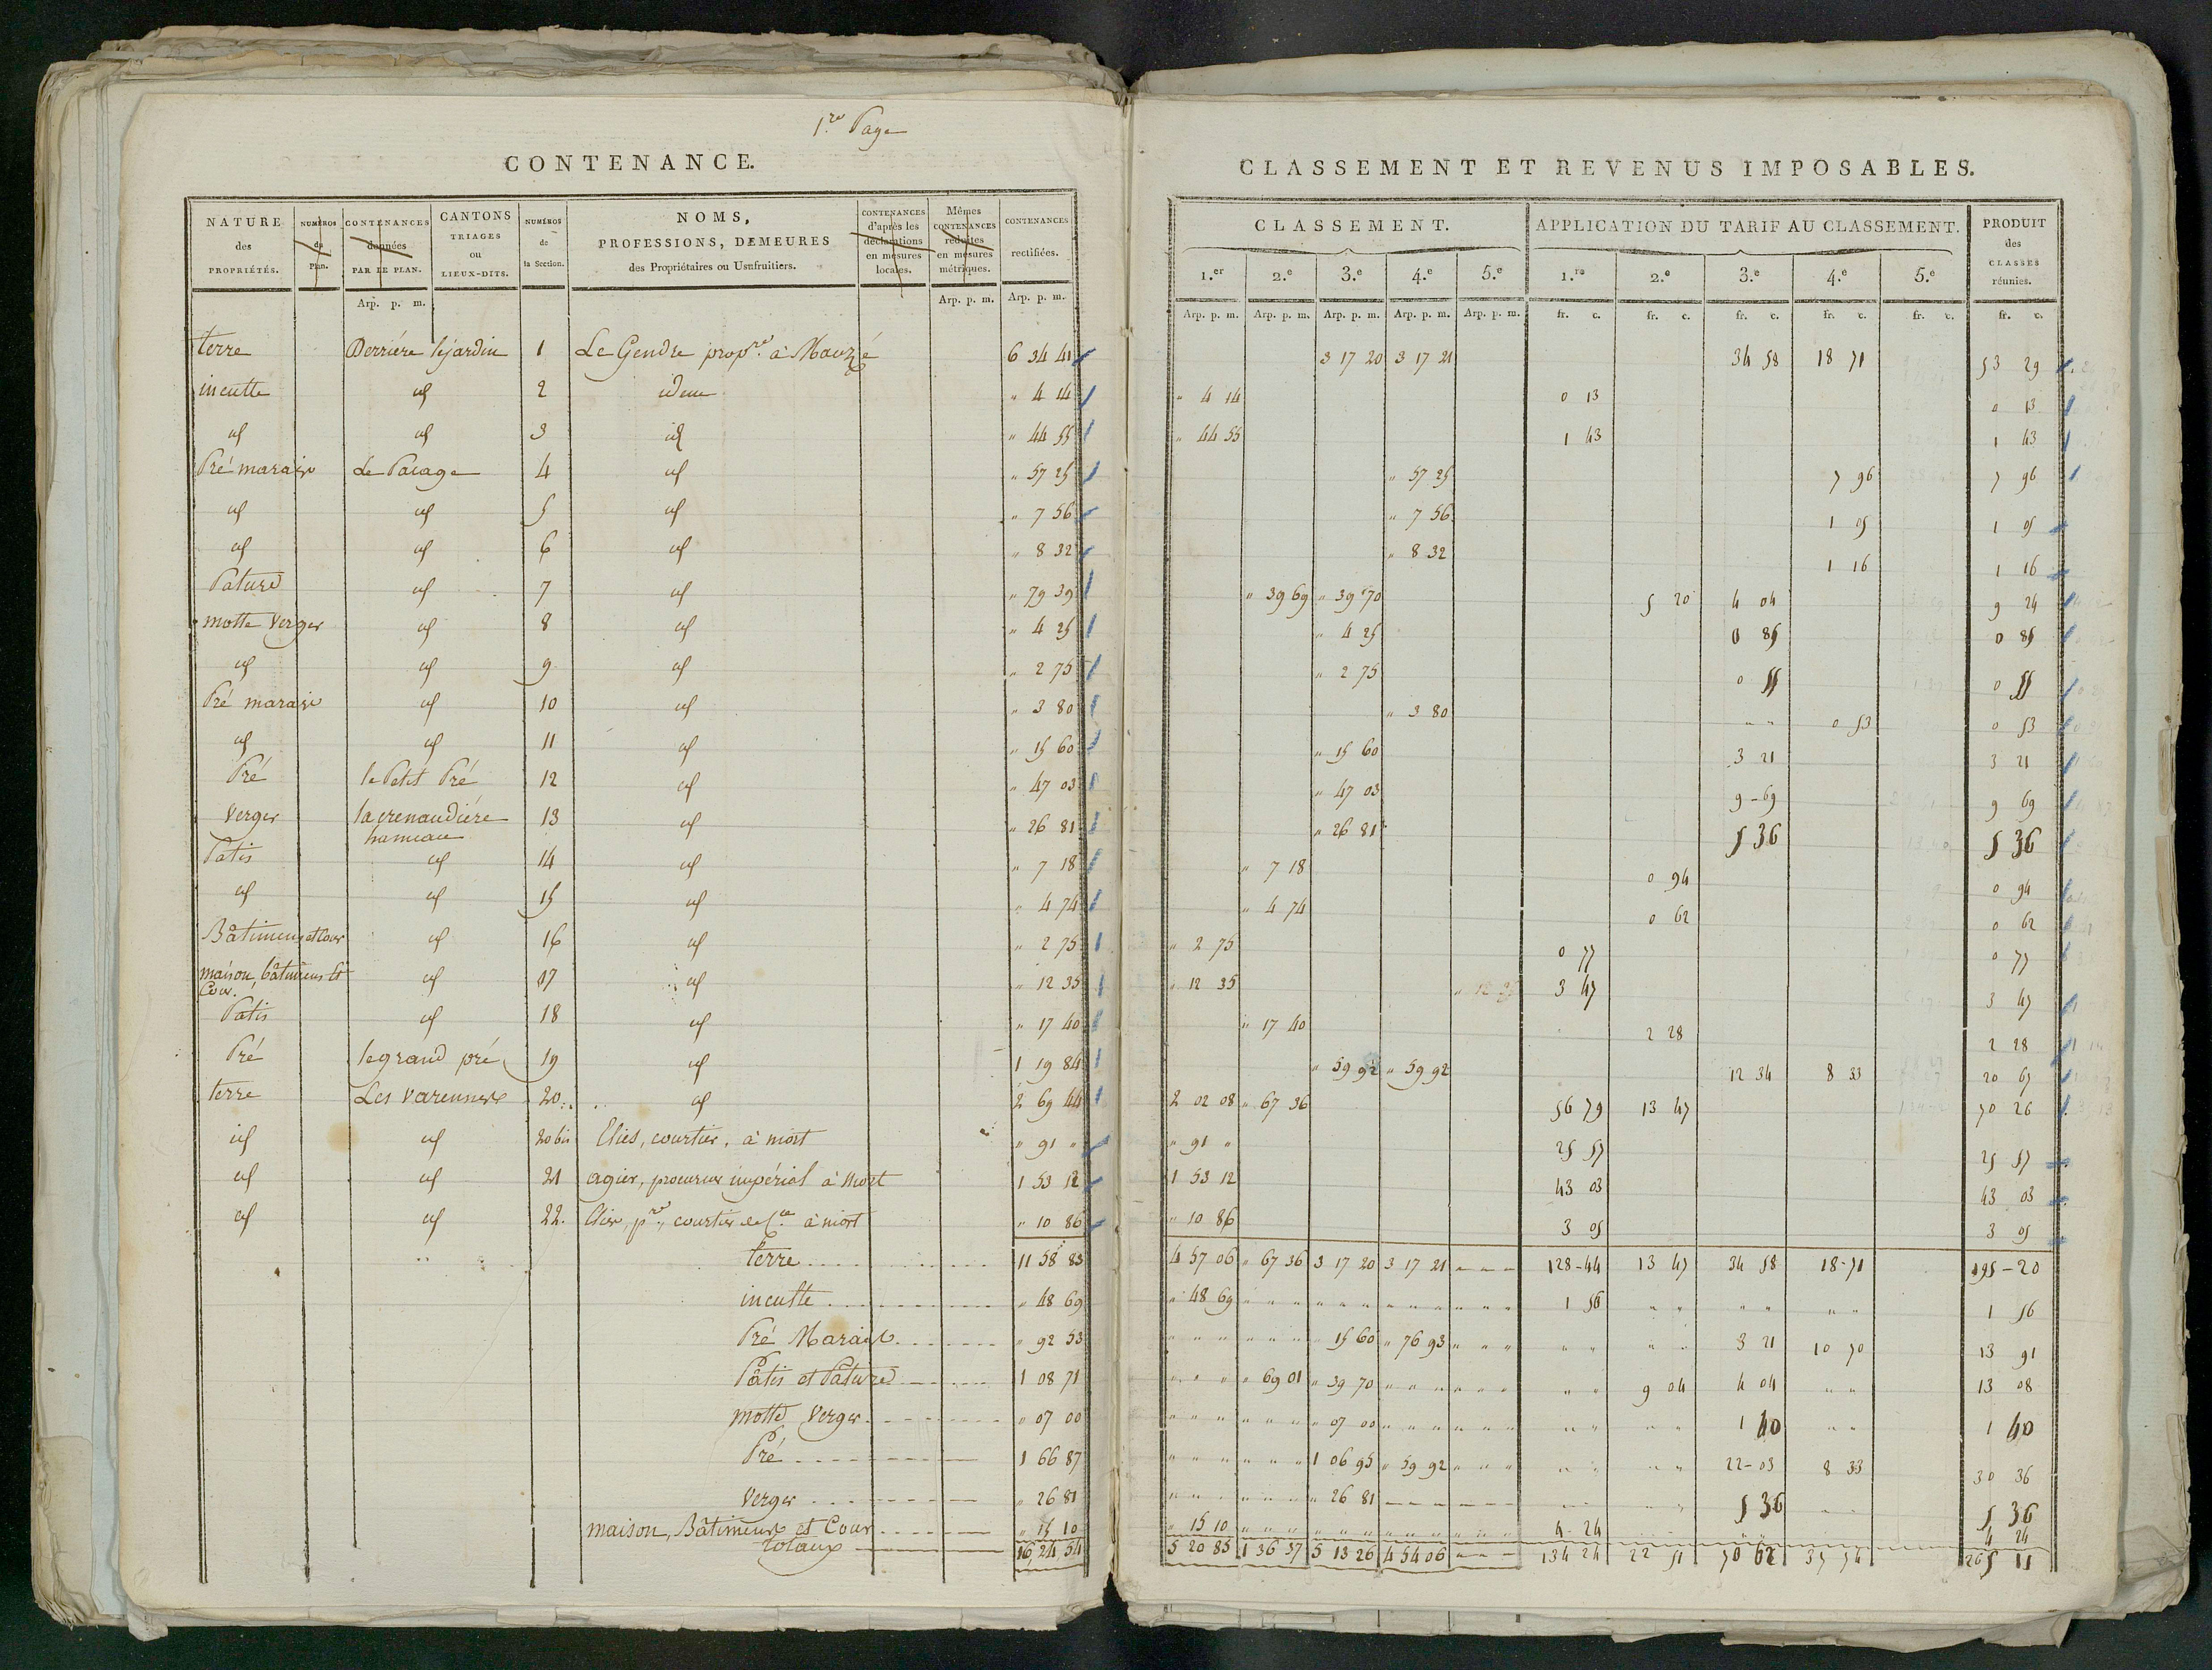 1.re Page
CONTENANCE.
NATURE des PROPRIÉTÉS. NUMÉROS du Plan. CONTENANCES données PAR LE PLAN. CANTONS TRIAGES ou LIEUX-DITS. NUMÉROS de la Section. NOMS, PROFESSIONS, DEMEURES des Propriétaires ou Usufruitiers. CONTENANCES d'après les déclarations en mesures locales. Mêmes CONTENANCES réduites en mesures métriques. CONTENANCES rectifiées.
Arp. p. m. Arp. p. m. Arp. p. m.
terre Derriére le jardin 1 Le Gendre prop.re à Mauzé 6 34 41
inculte id 2 idem " 4 14
id id 3 id " 44 55
Pré marais Le Pacage 4 id " 57 25
id id 5 id " 7 56
id id 6 id " 8 32
Pature id 7 id " 79 39
motte Verger id 8 id " 4 25
id id 9 id " 2 75
Pré marais id 10 id " 3 80
id id 11 id " 15 60
Pré le Petit Pré 12 id " 47 03
Verger la crenaudiére hameau 13 id " 26 81
Patis id 14 id " 7 18
id id 15 id " 4 74
Bâtimens et Cour id 16 id " 2 75
maison, bâtimens et Cour. id 17 id " 12 35
Patis id 18 id " 17 40
Pré le grand pré 19 id 1 19 84
terre Les Varennes 20 id 2 69 44
id id 20 bis Elies, courtier, à niort " 91 "
id id 21 agier, procureur impérial à niort 1 53 12
id id 22. courtier à niort " 10 86
terre 11 58 83
inculte " 48 69
Pré Marais " 92 53
Pâtis et Pature 1 08 71
motte Verger " 07 00
Pré 1 66 87
Verger " 26 81
maison, Bâtimens et Cour " 15 10
totaux 16 24 54
CLASSEMENT ET REVENUS IMPOSABLES.
CLASSEMENT. APPLICATION DU TARIF AU CLASSEMENT. PRODUIT des CLASSES réunies.
1.er 2.e 3.e 4.e 5.e 1.re 2.e 3.e 4.e 5.e
Arp. p. m. Arp. p. m. Arp. p. m. Arp. p. m. Arp. p. m. fr. c. fr. c. fr. c. fr. c. fr. c. fr. c.
3 17 20 3 17 21 34 58 18 71 53 29
" 4 14 0 13 0 13
" 44 55 1 43 1 43
" 57 25 7 96 7 96
" 7 56 1 05 1 05
" 8 32 1 16 1 16
" 39 69 " 39 70 5 20 4 04 9 24
" 4 25 0 85 0 85
" 2 75 0 55 0 55
" 3 80 " " 0 53 0 53
" 15 60 3 21 3 21
" 47 03 9-69 9 69
" 26 81 5 36 5 36
" 7 18 0 94 0 94
" 4 74 0 62 0 62
" 2 75 0 77 0 77
" 12 35 " 12 35 3 47 3 47
" 17 40 2 28 2 28
" 59 92 " 59 92 12 34 8 33 20 67
2 02 08 " 67 36 56 79 13 47 70 26
" 91 " 25 57 25 57
1 53 12 43 03 43 03
" 10 86 3 05 3 05
4 57 06 " 67 36 3 17 20 3 17 21 " " " 128-44 13 47 34 58 18-71 195-20
" 48 69 " " " " " " " " " " " " 1 56 " " " " " " 1 56
" " " " " " " 15 60 " 76 93 " " " " " " " 3 21 10 70 13 91
" " " " 69 01 " 39 70 " " " " " " " " 9 04 4 04 " " 13 08
" " " " " " " 07 00 " " " " " " " " " " 1 40 " " 1 40
" " " " " " 1 06 95 " 59 92 " " " " " " " 22-03 8 33 30 36
" " " " " " " 26 81 5 36 5 36
" 15 10 " " " " " " " " " " " " 4-24 4 24
5 20 85 1 36 37 5 13 26 4 54 06 " " " 134 24 22 51 70 62 37 74 265 11